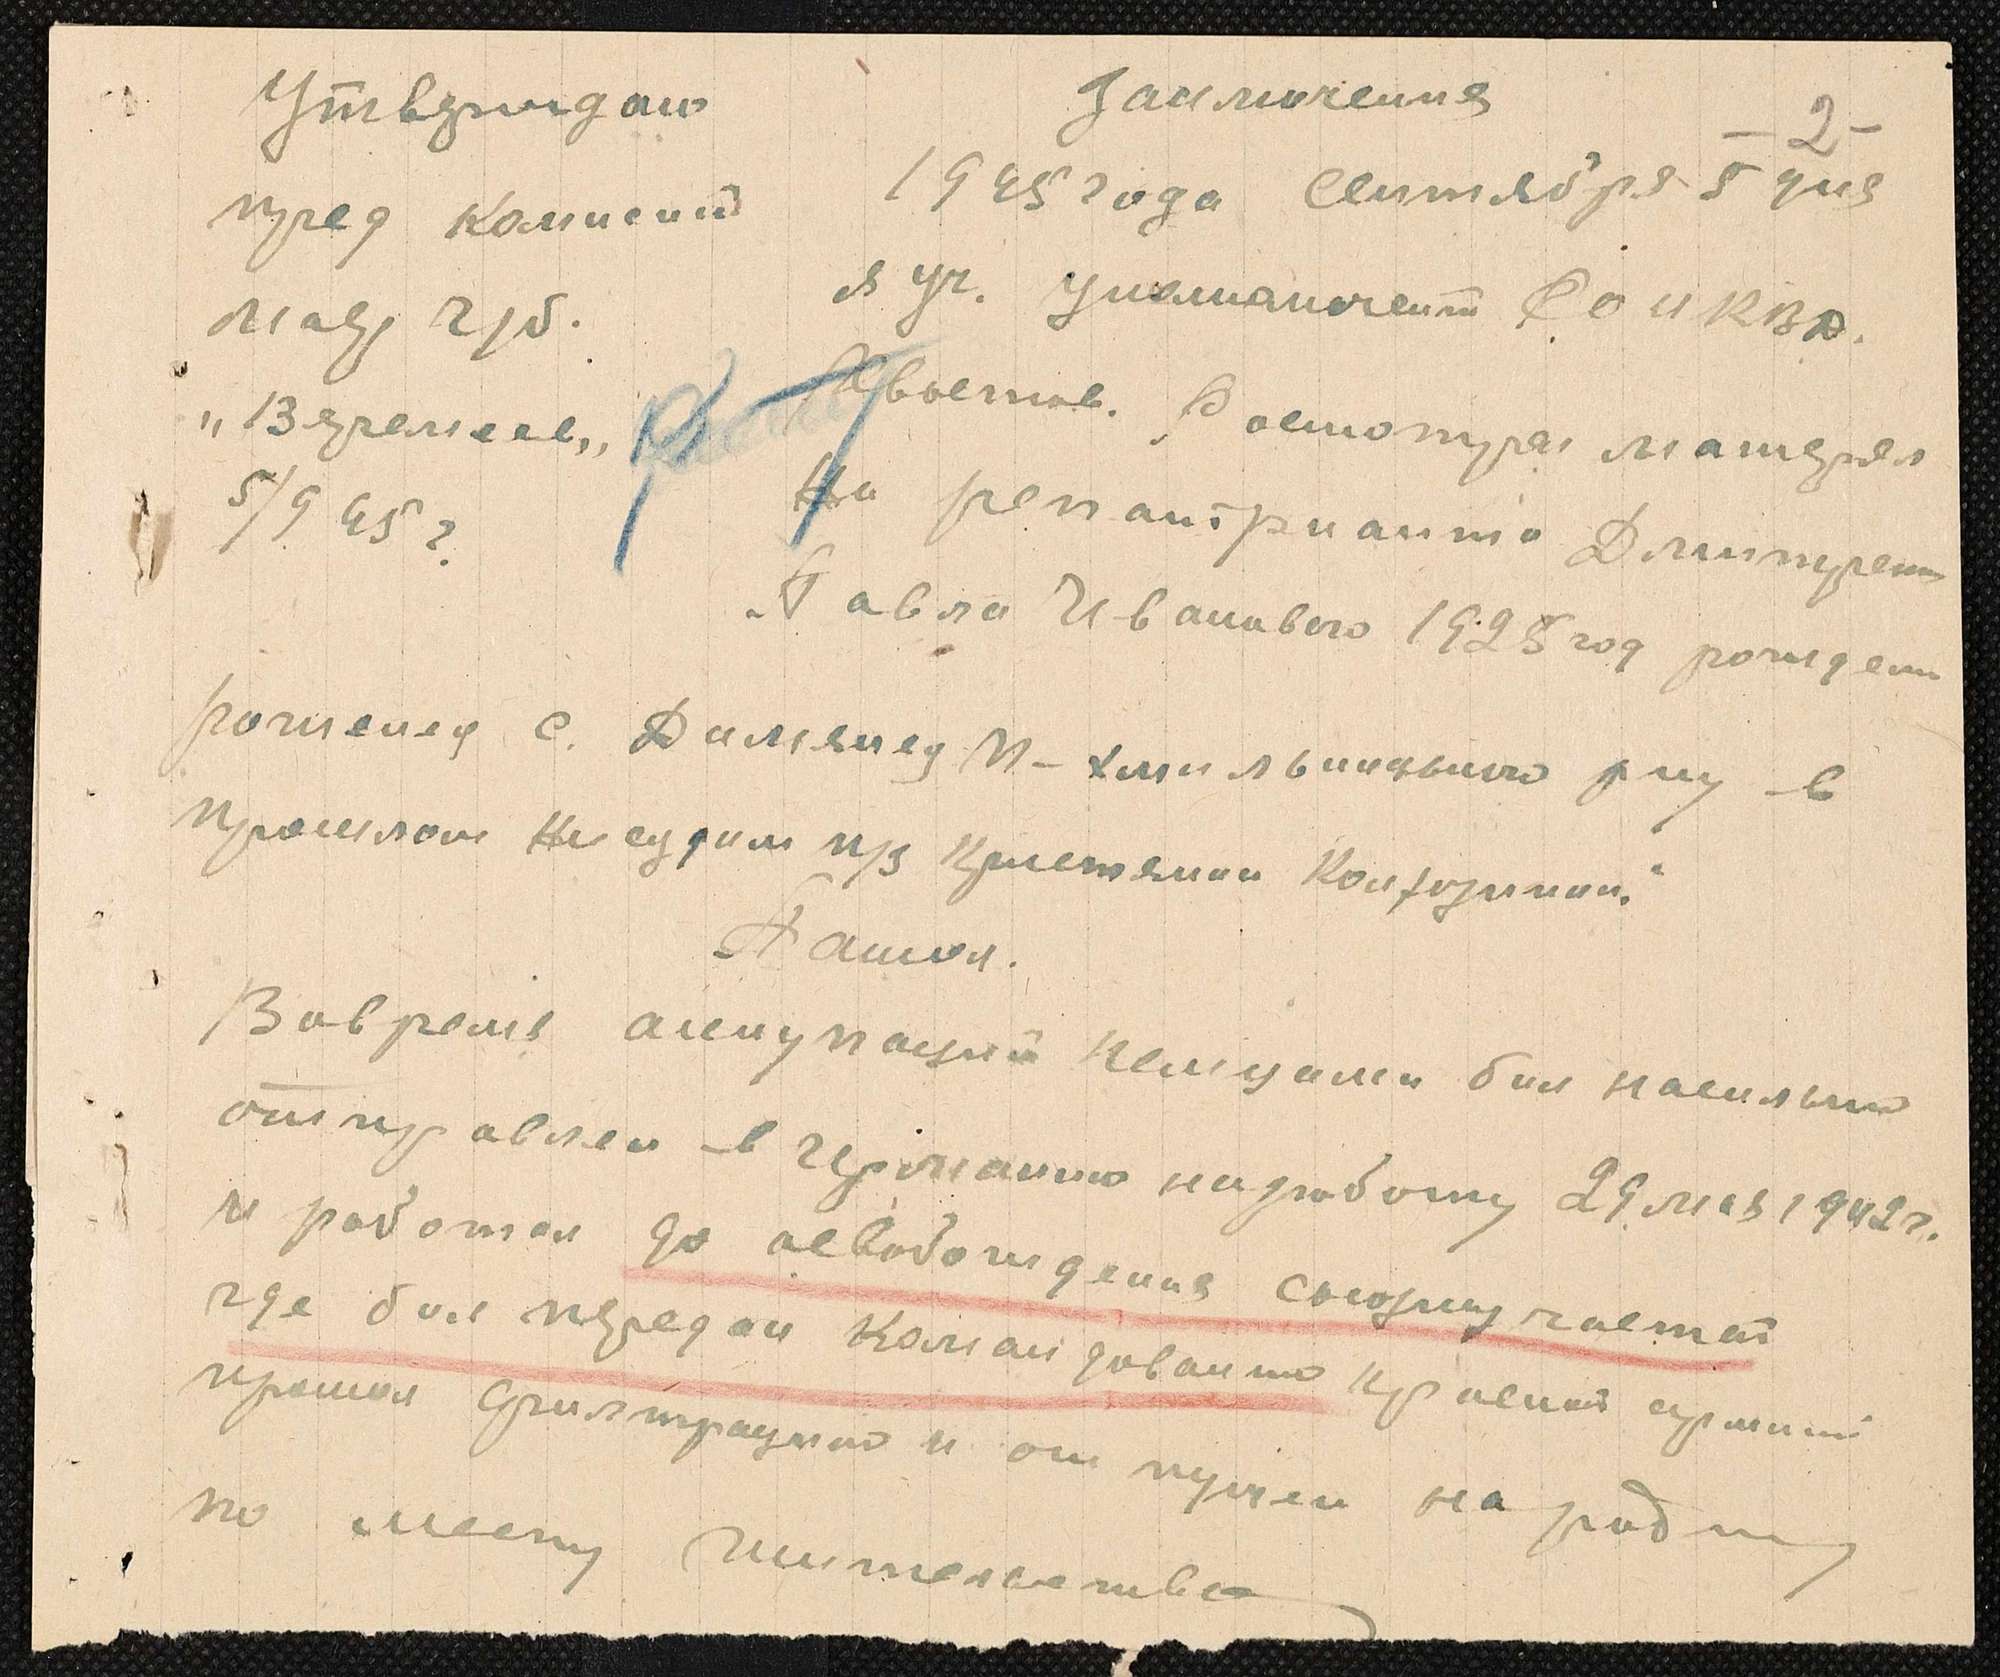 Утверждаю
пред комисий
маер г/б.
„Веремеев„
5/9 45 г.
Заключения
- 2 -
1945 года Сентября 5 дня
я уч. уполномочент РО НКВД.
Хвостов. Росмотрел матерял
На репантрианта Дмитрен
Павла Ивановего 1925 год рожден
роженец с. У-хмильницького р ну в
прошлом не судим п/з
Нашол.
Вовремя окупаций немцами бил насильно
отправлен в Германию на работу 29 мая 1942 г.
и работал до освобождения союзну частей
где бил передан командованию красной армий
прошол филтрацию и отпущен на родину
по месту жительства